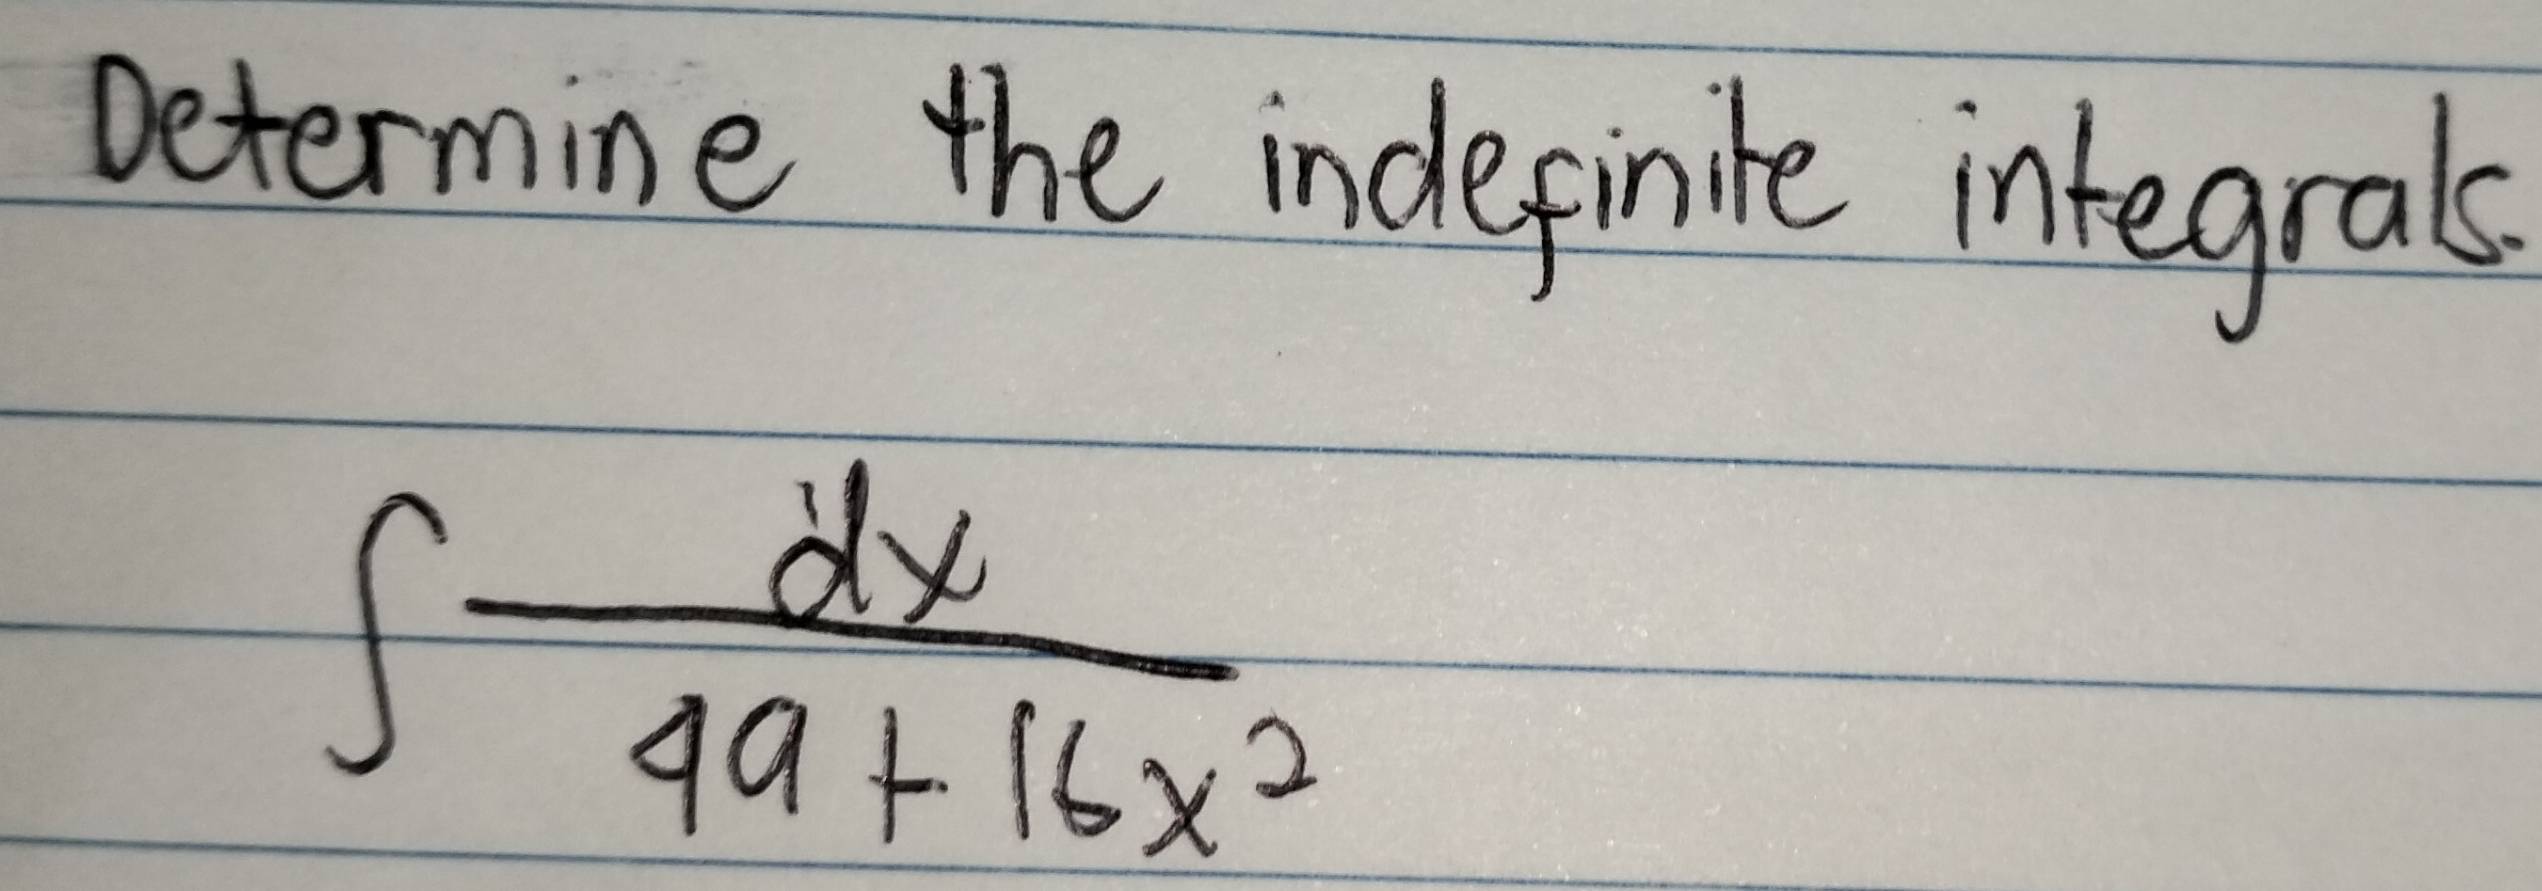 Determine the indefinite integrals.
∫ dx / 49 + 16x²